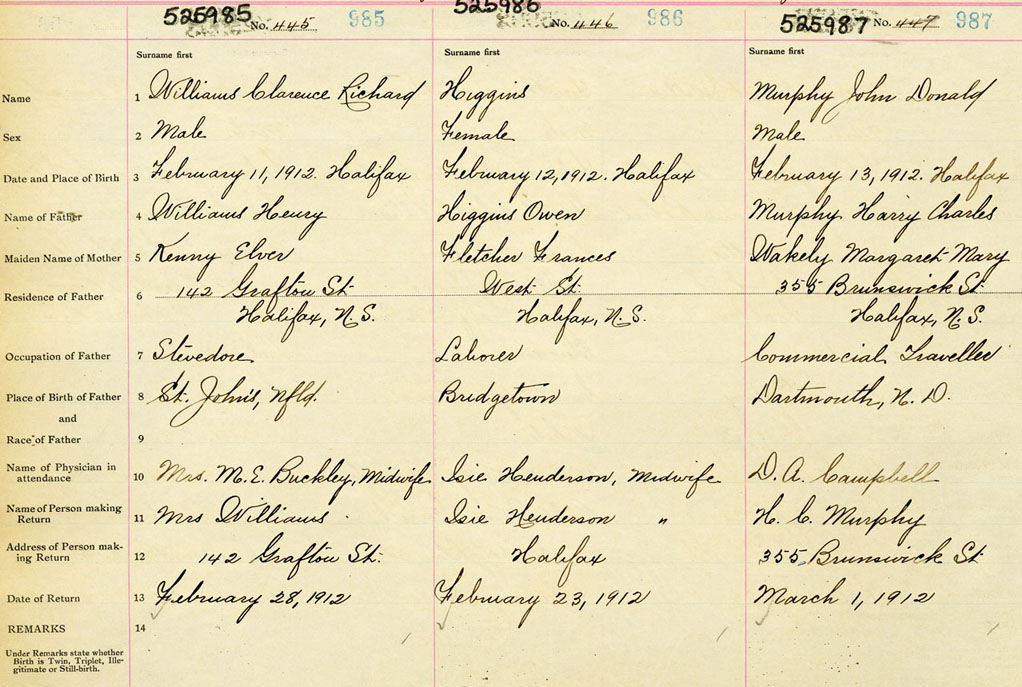 525985 No. 445 985 525986 No. 446 986 525987 No. 447 987
Surname first Surname first Surname first
Name 1 Williams Clarence Richard Higgins Murphy John Donald
Sex 2 Male Female Male
Date and Place of Birth 3 February 11, 1912. Halifax February 12, 1912. Halifax February 13, 1912. Halifax
Name of Father 4 Williams Henry Higgins Owen Murphy Harry Charles
Maiden Name of Mother 5 Kenny Elver Fletcher Frances Wakely Margaret Mary
Residence of Father 6 142 Grafton St. West St. 355 Brunswick St.
Halifax, N.S. Halifax, N.S. Halifax, N.S.
Occupation of Father 7 Stevedore Laborer Commercial Traveller
Place of Birth of Father 8 St. John's, Nfld. Bridgetown Dartmouth, N. D.
and
Race of Father 9
Name of Physician in
attendance 10 Mrs. M. E. Buckley, Midwife Isie Henderson, Midwife D. A. Campbell
Name of Person making
Return 11 Mrs Williams Isie Henderson " H. C. Murphy
Address of Person mak-
ing Return 12 142 Grafton St. Halifax 355 Brunswick St.
Date of Return 13 February 28, 1912 February 23, 1912 March 1, 1912
REMARKS 14
Under Remarks state whether
Birth is Twin, Triplet, Ille-
gitimate or Still-birth.